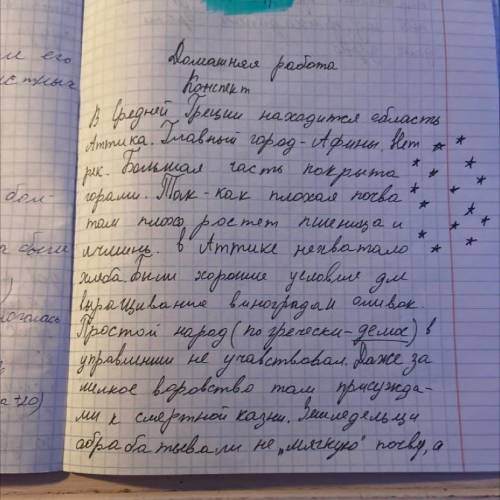 Домашняя работа
Конспект
В Средней Греции находится область
Аттика. Главный город-Афины. Нет
рек. Большая часть покрыта
горами. Так-как плохая почва
там плохо ростет пшеница и
ячмень. в Аттике нехватало
хлеба Были хорошие условие для
выращивание виноградаи оливок.
Простой народ (по гречески-демос) в
управлении не учавствовал. Даже за
мелкое воровство там присужда-
ли к смертной казни. Земледельци
обрабатывали не "мягкую" почву, а